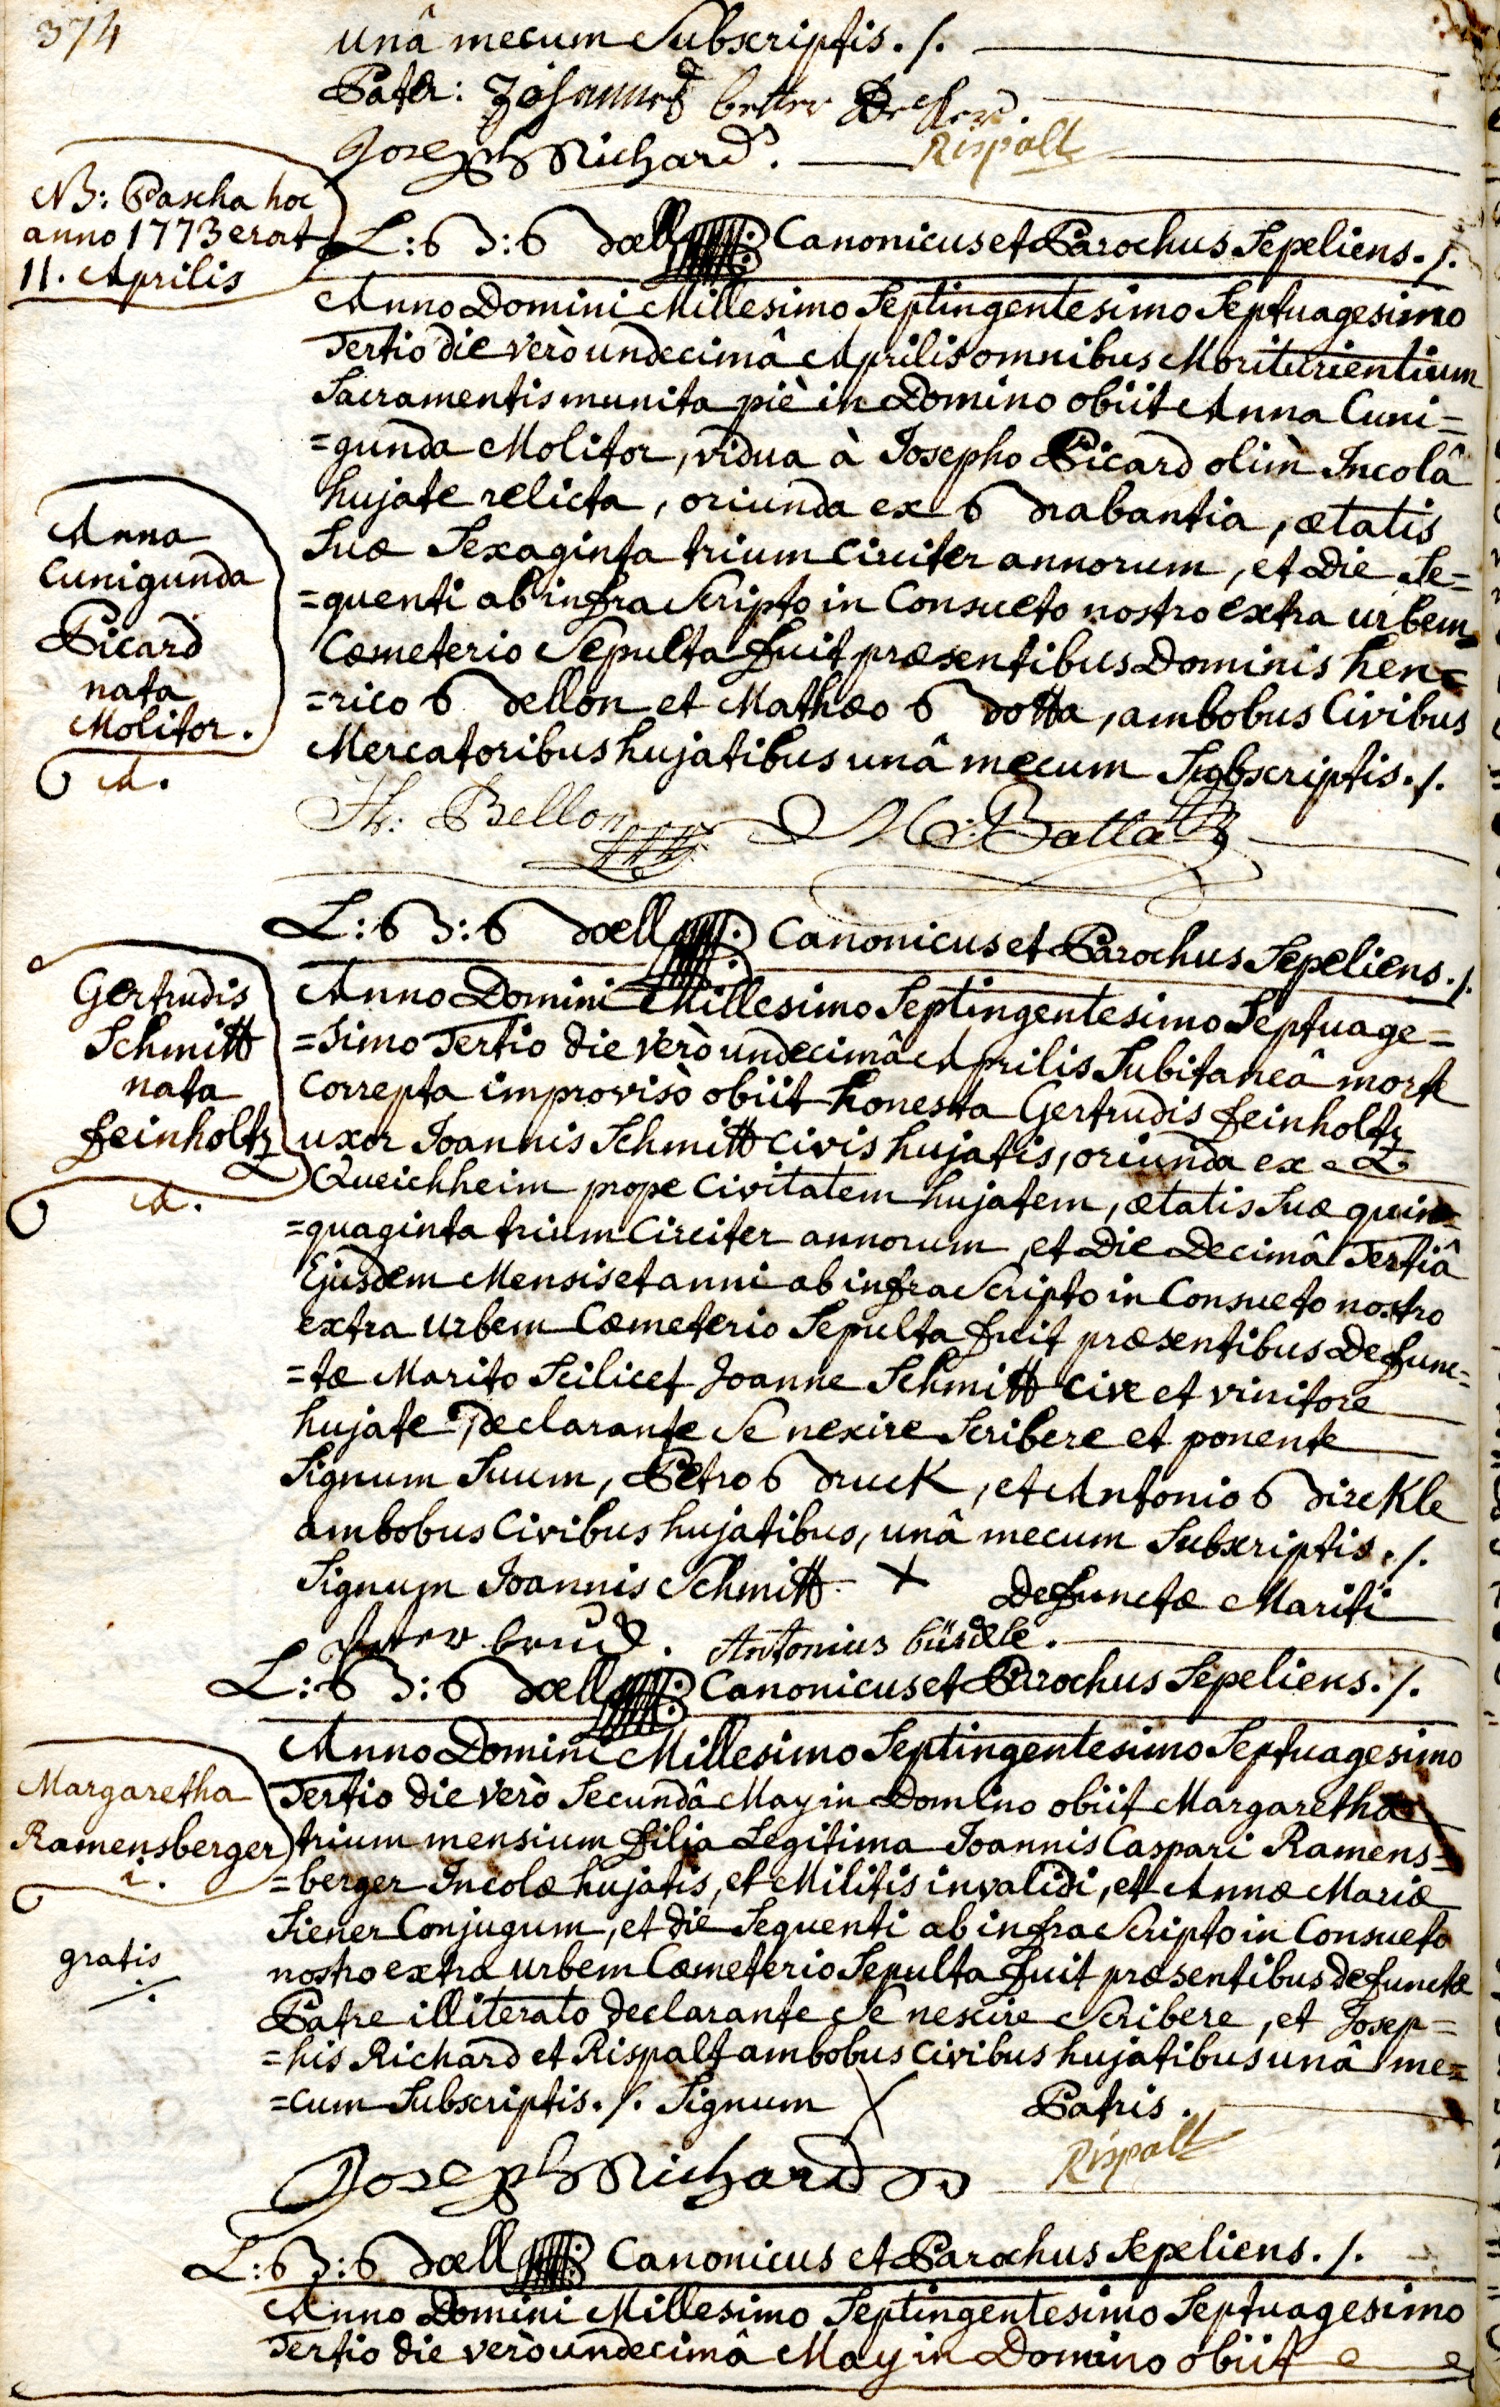 374
unâ mecum Subscriptis ./.
Pater: Johannes better Becker.
Joseph Richard. Rispalt
NB: Pascha hoc
anno 1773 erat
11. Aprilis
L: B: Boell Canonicus et Parochus Sepeliens ./.
Anno Domini Millesimo Septingentesimo Septuagesimo
Tertio die verò undecimâ Aprilis omnibus Moriturientium
Sacramentis munita piè in Domino obiit Anna Cuni=
=gunda Molitor, vidua à Josepho Picard olim Incolâ
hujate relicta, oriunda ex Brabantia, ætatis
Suæ Sexaginta trium circiter annorum, et die Se=
=quenti ab infra Scripto in Consueto nostro extra urbem
Cæmeterio Sepulta fuit præsentibus Dominis hen=
=rico Bellon et Mathæo Botta, ambobus Civibus
Mercatoribus hujatibus unâ mecum Subscriptis ./.
Anna
Cunigunda
Picard
nata
Molitor.
A.
H: Bellon M: Botta
L: B: Boell Canonicus et Parochus Sepeliens ./.
Gertrudis
Schmitt
nata
feinholtz
A.
Anno Domini Millesimo Septingentesimo Septuage=
=simo Tertio die verò undecimâ Aprilis Subitaneâ morte
correpta improvisò obiit honesta Gertrudis feinholtz
uxor Joannis Schmitt civis hujatis, oriunda ex
Queichheim prope Civitatem hujatem, ætatis Suæ quin=
=quaginta trium Circiter annorum, et die Decimâ Tertiâ
Ejusdem Mensis et anni ab infra Scripto in Consueto nostro
extra urbem Cæmeterio Sepulta fuit præsentibus Defunc=
=tæ Marito Scilicet Joanne Schmitt Cive et vinitore
hujate declarante Se nexire Scribere et ponente
Signum Suum, Petro Bruck, et Antonio Birckle
ambobus Civibus hujatibus, unâ mecum Subscriptis ./.
Signum Joannis Schmitt X Defunctæ Mariti
Peter bruck. Antonius bürckle.
L: B: Boell Canonicus et Parochus Sepeliens ./.
Margaretha
Ramensberger
i.
gratis
./.
Anno Domini Millesimo Septingentesimo Septuagesimo
Tertio die verò Secundâ May in Domino obiit Margaretha
trium mensium filia Legitima Joannis Caspari Ramens=
=berger Incolæ hujatis, et Militis invalidi, et Annæ Mariæ
Siener Conjugum, et die Sequenti ab infra Scripto in Consueto
nostro extra urbem Cæmeterio Sepulta fuit præsentibus defunctæ
Patre illiterato declarante Se nescire Scribere, et Josep=
=his Richard et Rispalt ambobus Civibus hujatibus unâ me=
=cum Subscriptis ./. Signum X Patris.
Joseph Richard Rispalt
L: B: Boell Canonicus et Parochus Sepeliens ./.
Anno Domini Millesimo Septingentesimo Septuagesimo
Tertio die verò undecimâ May in Domino obiit